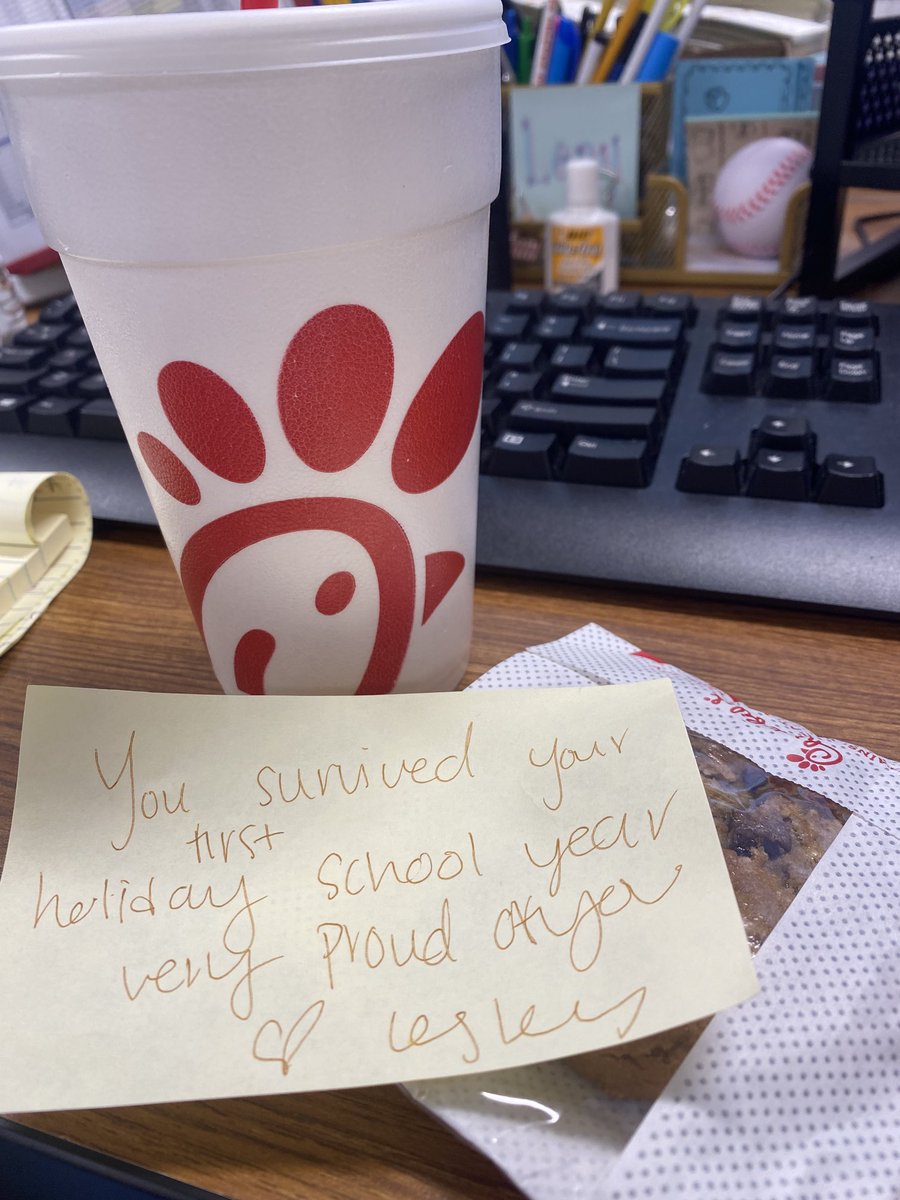 You survived your
first
holiday school year
very proud of you
♡ Lesley